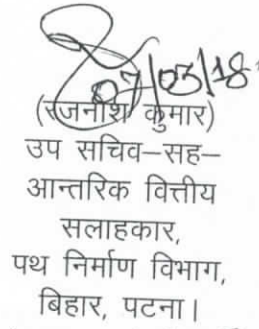 07/05/18
(रजनीश कुमार)
उप सचिव–सह–
आन्तरिक वित्तीय
सलाहकार,
पथ निर्माण विभाग,
बिहार, पटना।